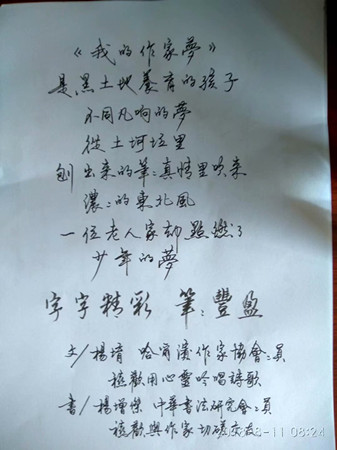 《我的作家夢》
是黑土地養育的孩子
不同凡响的夢
從土坷垃里
刨出来的筆：真情里吹来
濃：的東北風
一位老人家點燃了
少年的夢
字字精彩 筆：豐盈
文/楊 哈爾濱作家協會：員
歡用心靈吟唱詩歌
書/楊增傑 中華書法研究會：員
歡與作家切磋交友
-11 08:24